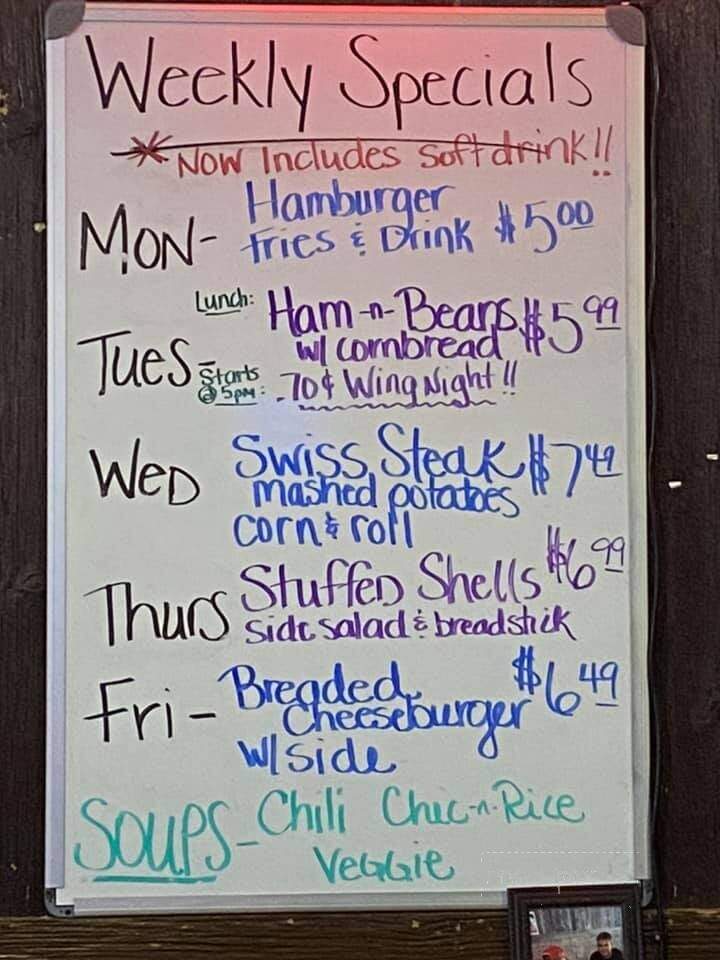 Weekly Specials
* NOW Includes Soft drink!!
Hamburger
MON- fries & Drink $5.00
Lunch: Ham-n-Beans $5.99
w/ cornbread
TUES- Starts @ 5pm: .70¢ Wing Night!!
WED Swiss Steak $7.49
mashed potatoes
corn & roll
Thurs Stuffed Shells $6.99
side salad & breadstick
Fri- Breaded $6.49
Cheeseburger
w/side
SOUPS- Chili Chic-n-Rice
Veggie